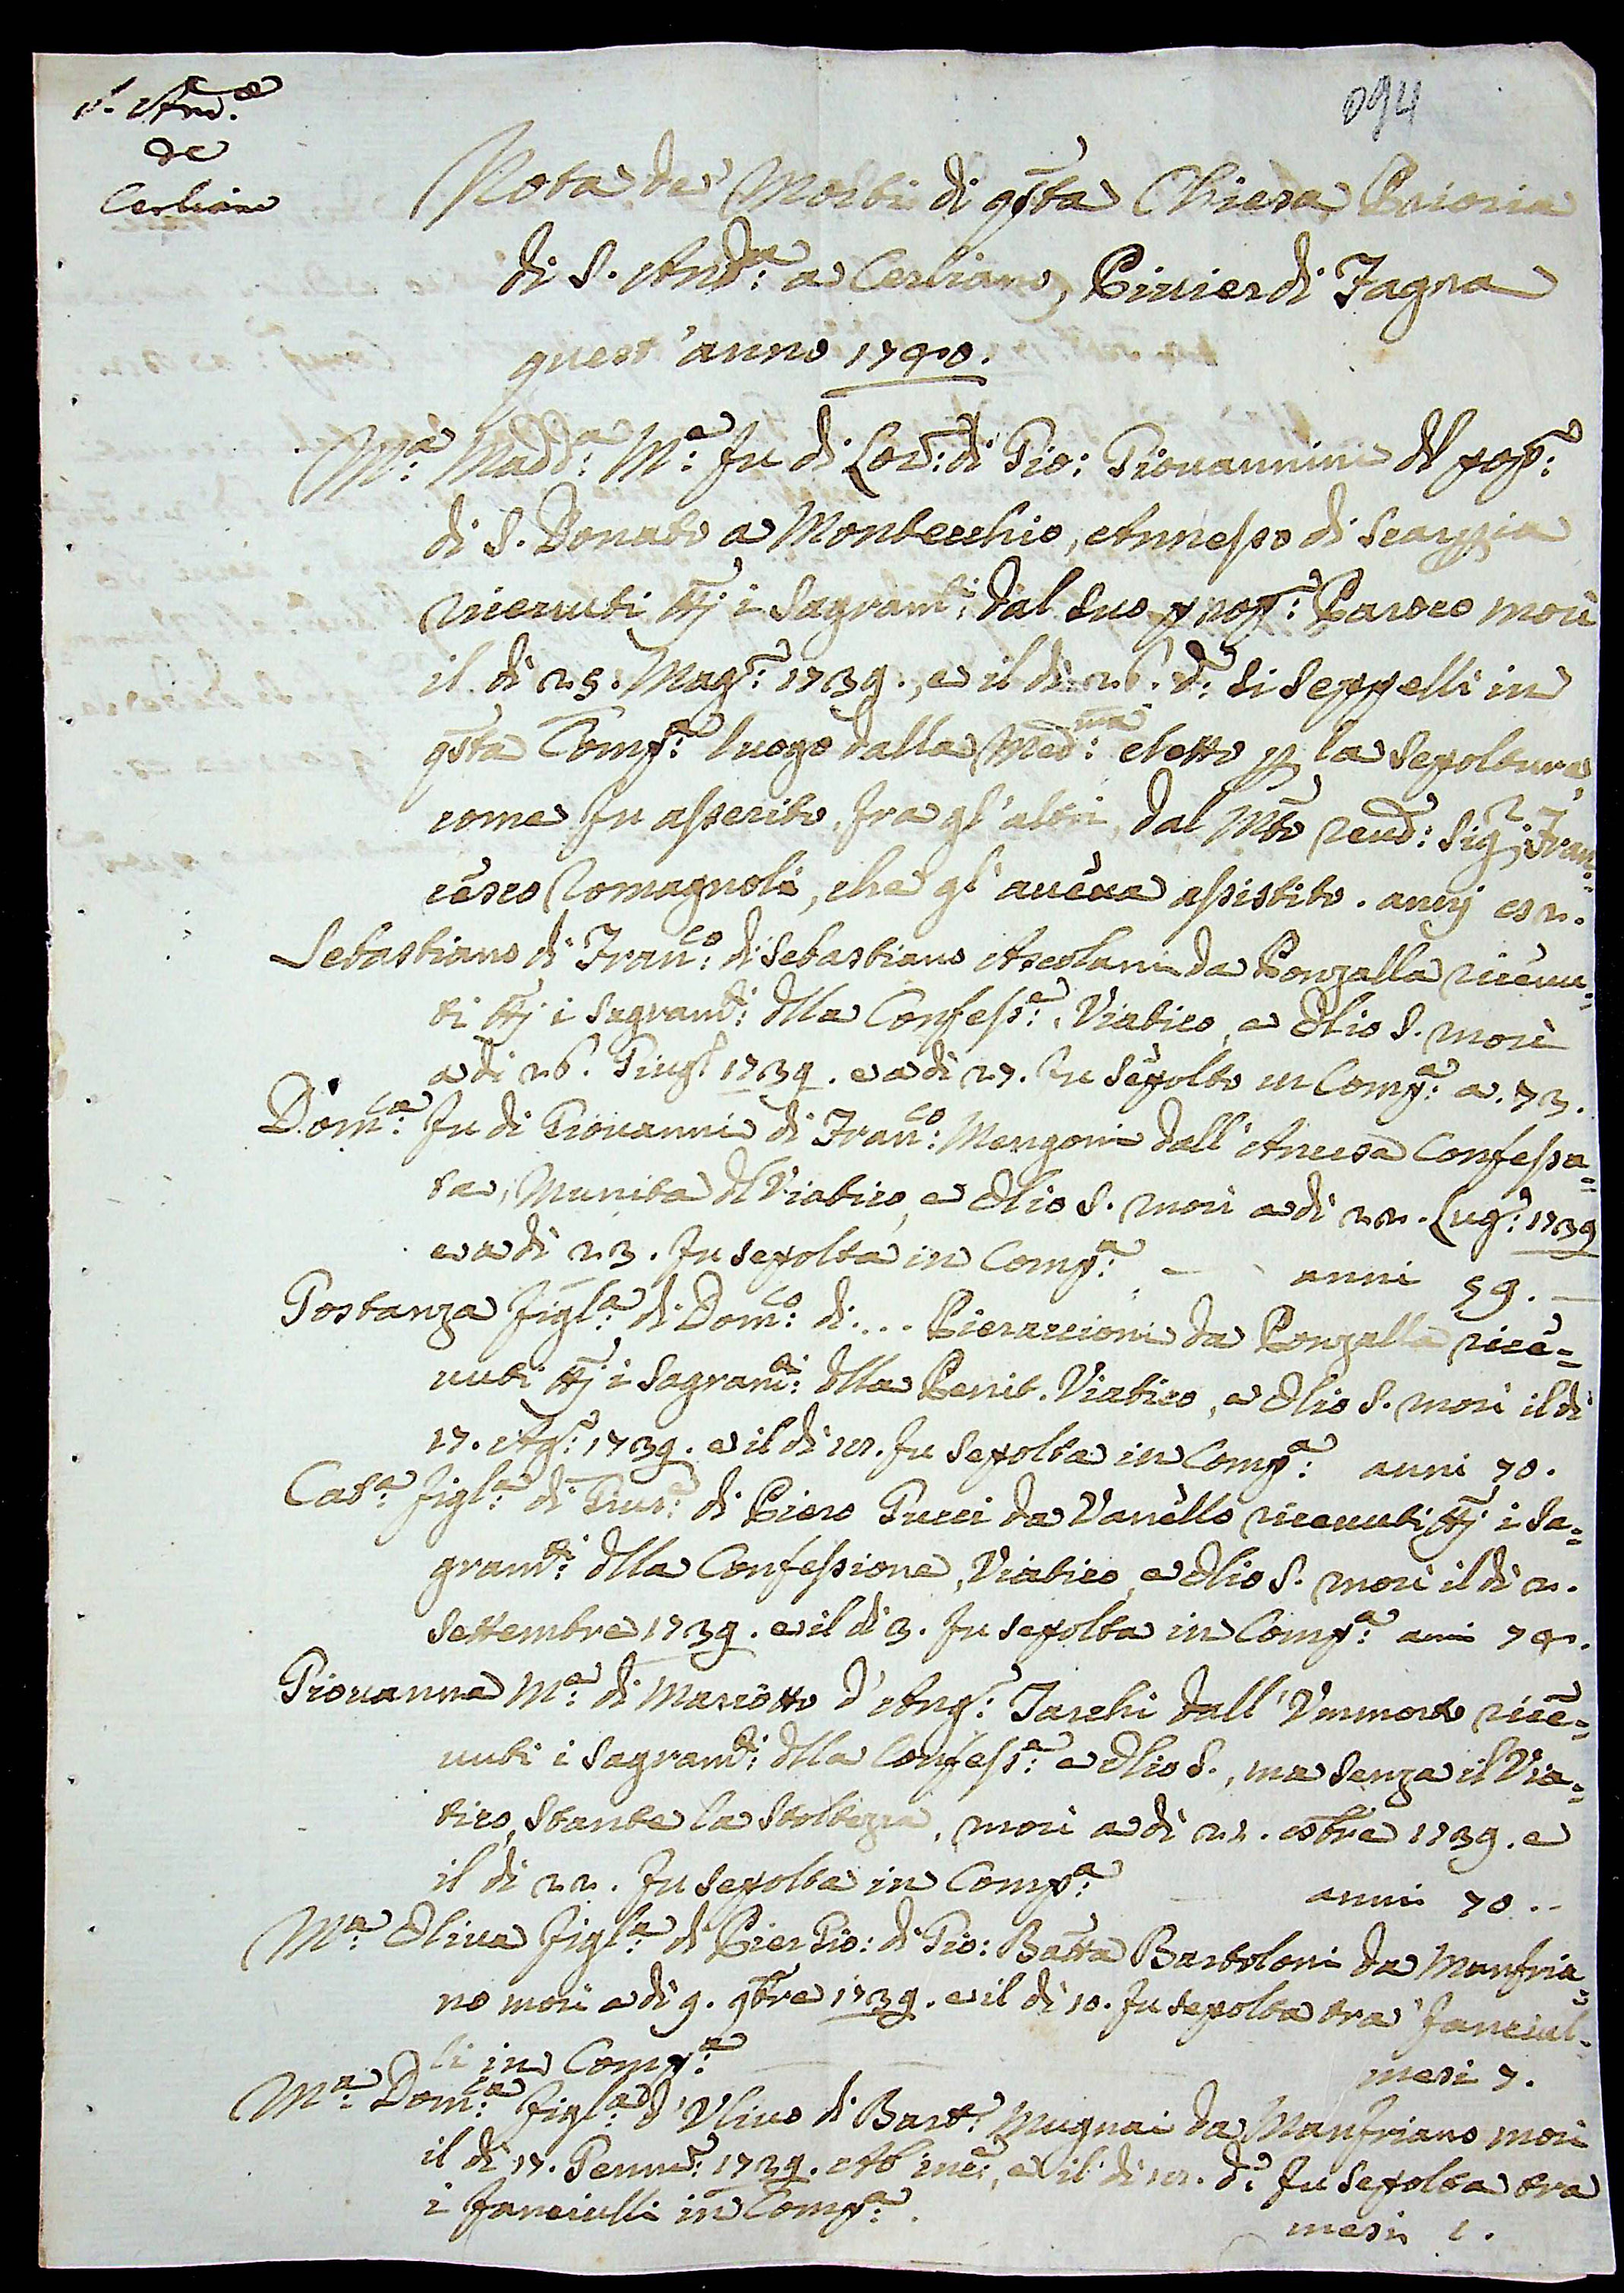 094
S. And.a
de
Cerliano
Nota de' Morti di qsta Chiesa Prioria
di S. And.a a Cerliano, Pivier di Fagna
quest'anno 1740.
M.a Madd.a M.e fu di Lor.o di Gio: Giovannini dl pop.o
di S. Donato a Montecchio, Annesso di Scarpia
ricevuti ttj i Sagram.ti dal suo prop.o Paroco morì
il dì 25. Mag.o 1739., e il dì 26. d.o si seppellì in
qsta Comp.a luogo dalla Med.ma eletto p la sepoltura,
come fu asserito, fra gl'altri, dal Mto Revd: Sig.r Fran=
cesco Romagnoli, che gl'aveva assistito. annj 62.
Sebastiano di Fran.co di Sebastiano Ascolani da Ponzalla ricevu=
ti ttj i Sagram.ti dlla Confess.e, Viatico, e Olio S. morì
a dì 26. Giug.o 1739. e a dì 27. fu sepolto in Comp.a a. 73.
Dom.ca fu di Giovanni di Fran.co Mengoni dall'Ancisa Confessa=
ta, Munita dl Viatico, e Olio S. morì a dì 22. Lug.o 1739
e a dì 23. fu sepolta in Comp.a — anni 59. —
Gostanza figl.a di Dom.co di.... Pieraccioni da Ponzalla rice=
vuti ttj i Sagram.ti dlla Penit. Viatico, e Olio S. morì il dì
17. Ag.o 1739. e il dì 18. fu sepolta in Comp.a anni 70.
Cat.a figl.a di Gius.e di Piero Gucci da Vanello ricevuti ttj i Sa=
gram.ti dlla Confessione, Viatico, e Olio S. morì il dì 2.
Settembre 1739. e il dì 3. fu sepolta in Comp.a anni 74.
Giovanna M.a di Mariotto d'Ang.o Tarchi dall' rice=
vuti i Sagram.ti dlla Confess.e e Olio S., ma senza il Via=
tico, stante la stoltezza, morì a dì 21. 8bre 1739. e
il dì 22. fu sepolta in Comp.a anni 70..
M.a Oliva figl.a di Pier Gio: di Gio: Batta Bartoloni da Manfria=
no morì a dì 9. 9bre 1739. e il dì 10. fu sepolta tra' fanciul=
li in Comp.a mesi 7.
M.a Dom.ca figl.a d'Ulivo di Bart.o Mugnai da Manfriano morì
il dì 17. Genn.o 1739. Ab inc:, e il dì 18. d.o fu sepolta tra
i fanciulli in Comp.a. mesi 1.